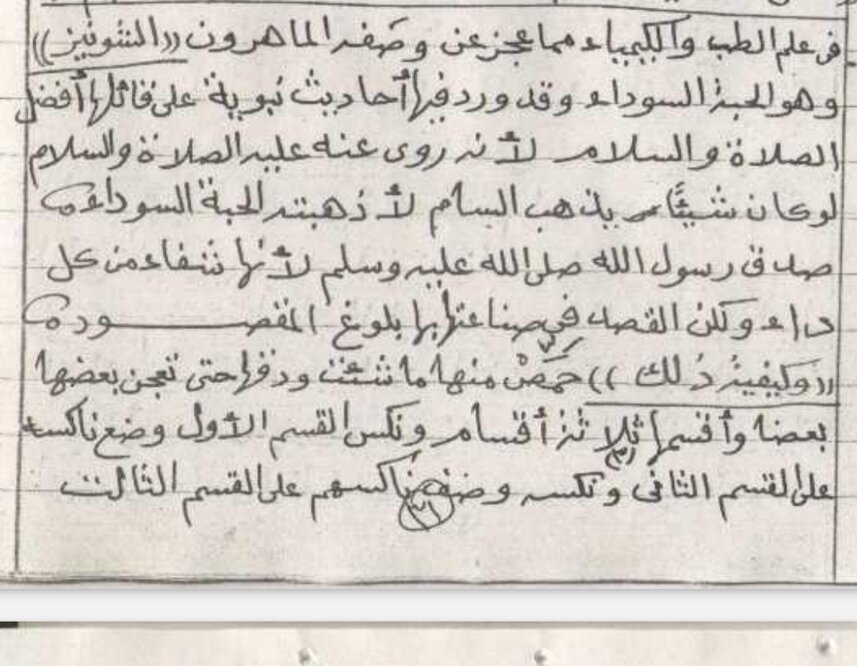 فى علم الطب والكيمياء مما عجز عن وصفه الماهرون ((الشونيز))
وهو الحبة السوداء وقد ورد فيها أحاديث نبوية على قائلها أفضل
الصلاة والسلام لأنه روى عنه عليه الصلاة والسلام
لو كان شيئًا يذهب السام لأذهبته الحبة السوداء
صدق رسول الله صلى الله عليه وسلم لأنها شفاء من كل
داء ولكن القصد في صناعتها بلوغ المقصود
((وكيفية ذلك)) حمص منها ما شئت ودقها حتى تعجن بعضها
بعضا وأقسمها ثلاثة أقسام ونكس القسم الأول وضع ناكسه
على القسم الثانى ونكسه وضف ناكسهم على القسم الثالث